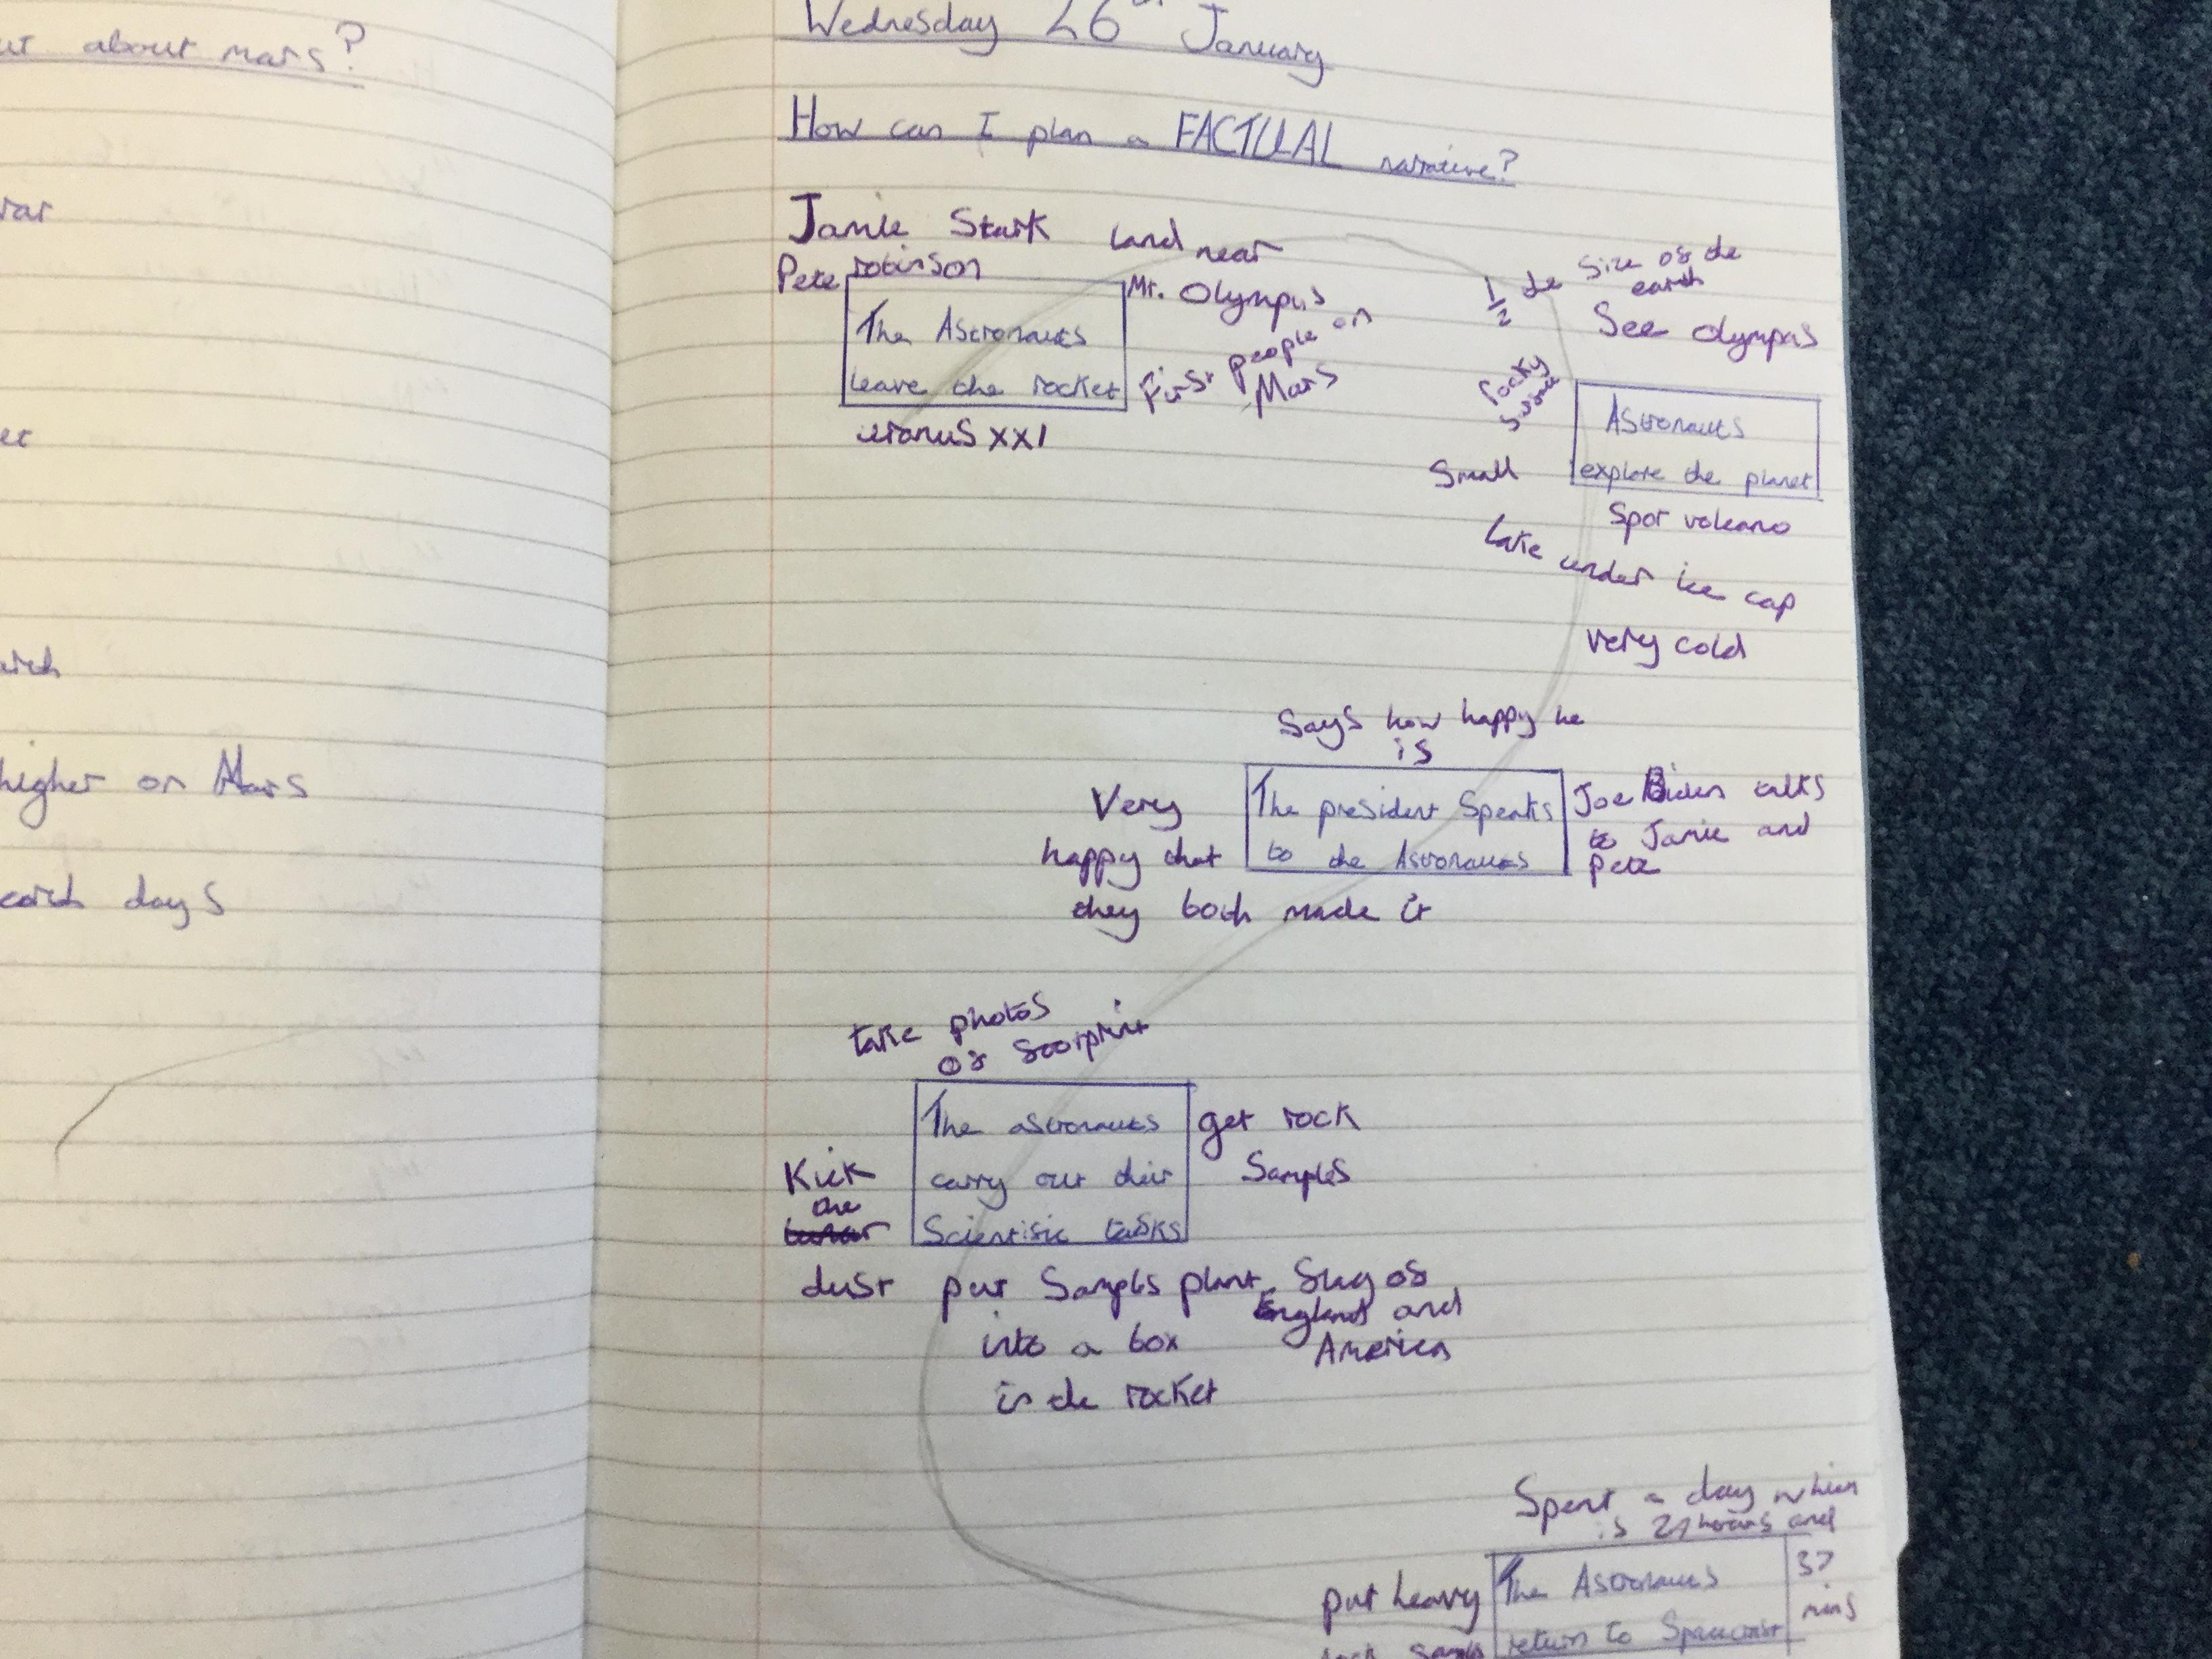 about mars?
higher on Mars
earth days
Wednesday 26th January
How can I plan a FACTUAL narrative?
Jamie Stark
Pete robinson
land near
Mt. Olympus
First people on
Mars
The Astronauts
leave the rocket
uranus XXI
1/2 the size of the
earth
See Olympus
rocky
Small
Astronauts
explore the planet
Spot volcano
lake under ice cap
very cold
Says how happy he
is
Very
happy that
they both made it
The president Speaks
to the Astronauts
Joe Biden talks
to Jamie and
Pete
take photos
of footprint
The astronauts
carry out their
Scientific tasks
get rock
Samples
Kick
the
dust
put Samples
into a box
in the rocket
plant flag of
England and
America
Spent a day which
is hours and
37
mins
put heavy
rock
The Astronauts
return to Spacecraft